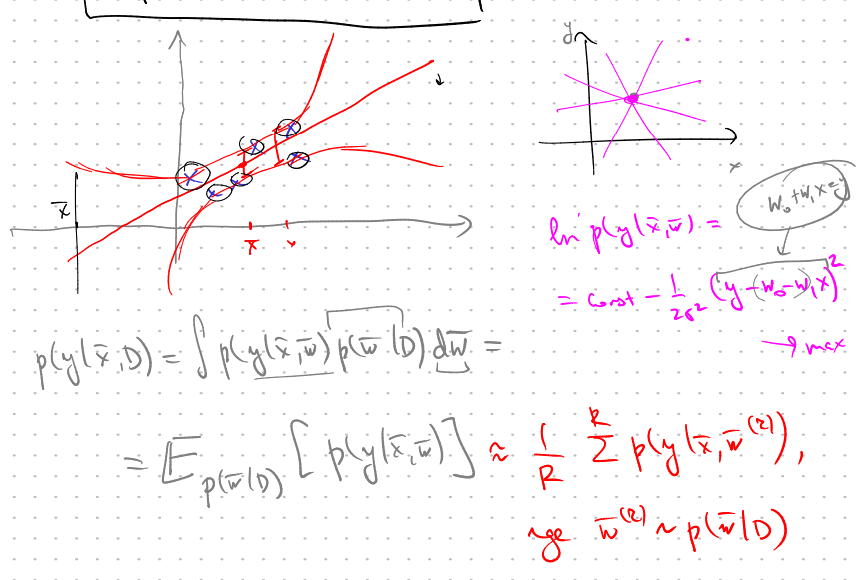 y
x
x̄
x̄
x
w₀+w₁x=y
ln p(y|x̄,w̄) =
= const − 1/2σ² (y−(w₀−w₁)x)²
→ max
p(y|x̄,D) = ∫ p(y|x̄,w̄) p(w̄|D) dw̄ =
= 𝔼_{p(w̄|D)} [ p(y|x̄,w̄) ] ≈ 1/R Σ^R p(y|x̄,w̄^{(r)}),
где w̄^{(r)} ~ p(w̄|D)